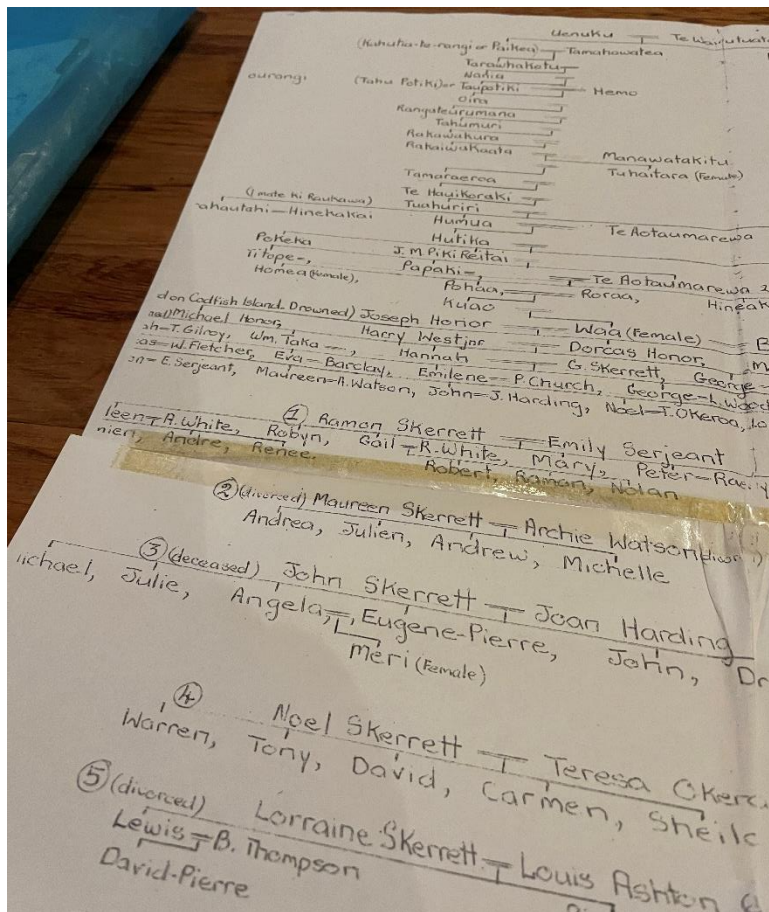 Uenuku Te Waiputuatu
(Kahutia-te-rangi or Paikea) Tamahawatea
Tarawhakatu
Nadia
ourangi (Tahu Potiki) or Taupotiki Hemo
Oira
Rangiteurumana
Tahumuri
Rakawakura
Rakaiwakaata
Manawatakitu
Tamaraeroa Tuhaitara (Female)
Te Hauikaraki
(1 mate ki Raukawa) Tuahuriri
ahautahi - Hinekakai Humua Te Aotaumarewa
Hutika
Pokeka J.M Piki Reitai
Titope-, Papaki-, Te Aotaumarewa 2
Homea (Female), Pohaa, Roraa, Hineak
Kuao
d on Codfish Island. Drowned) Joseph Honor Waa (Female) B
Michael Honor, Harry Westjor Dorcas Honor, M
ah-T. Gilroy, Wm. Taka -, Hannah G. Skerrett, George-
as-W. Fletcher, Eva-Barclay, Emilene-P. Church, George-L. Wood
on-E. Serjeant, Maureen-A. Watson, John-J. Harding, Noel-T. Okeroa, Lo
① Ramon Skerrett Emily Serjeant
leen-A. White, Robyn, Gail-R. White, Mary, Peter-Rae.
nien, Andre, Renee. Robert, Raman, Nolan
② (divorced) Maureen Skerrett Archie Watson
Andrea, Julien, Andrew, Michelle
③ (deceased) John Skerrett Joan Harding
ichael, Julie, Angela, Eugene-Pierre, John, Dr
Meri (Female)
④ Noel Skerrett Teresa Okero
Warren, Tony, David, Carmen, Sheila
⑤ (divorced) Lorraine Skerrett Louis Ashton
Lewis B. Thompson
David-Pierre